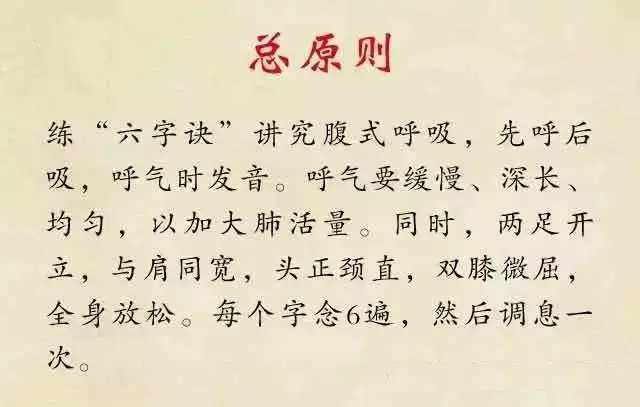 总原则
练“六字诀”讲究腹式呼吸，先呼后
吸，呼气时发音。呼气要缓慢、深长、
均匀，以加大肺活量。同时，两足开
立，与肩同宽，头正颈直，双膝微屈，
全身放松。每个字念6遍，然后调息一
次。